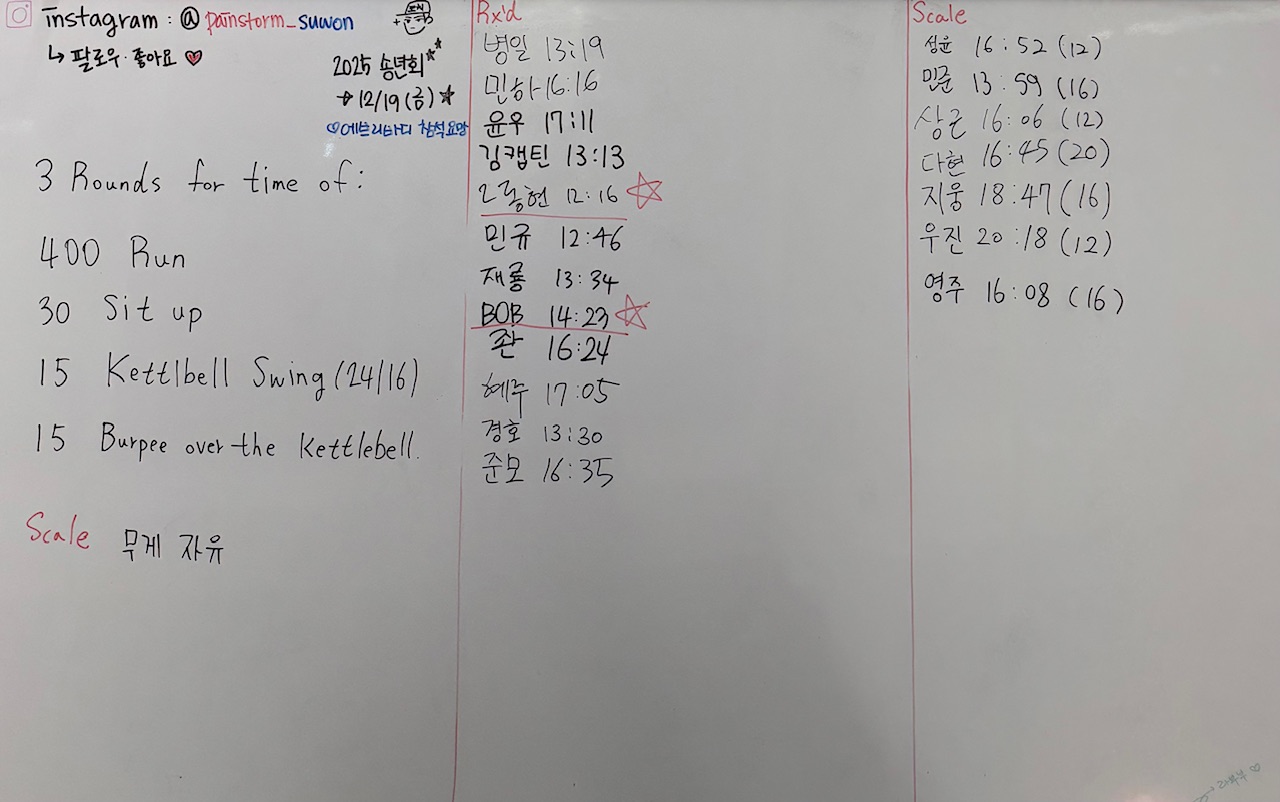 instagram : @ painstorm_suwon
↳ 팔로우·좋아요 ♥
2025 송년회
→ 12/19(금)
♡에브리바디 참석요망
3 Rounds for time of:
400 Run
30 Sit up
15 Kettlbell Swing (24/16)
15 Burpee over the Kettlebell.
Scale 무게 자유
Rx'd
병일 13:19
민하 16:16
윤우 17:11
김캡틴 13:13
동현 12:16
민규 12:46
재룡 13:34
BOB 14:23
좐 16:24
혜주 17:05
경호 13:30
준모 16:35
Scale
성윤 16:52 (12)
민준 13:59 (16)
상근 16:06 (12)
다현 16:45 (20)
지웅 18:47 (16)
우진 20:18 (12)
영주 16:08 (16)